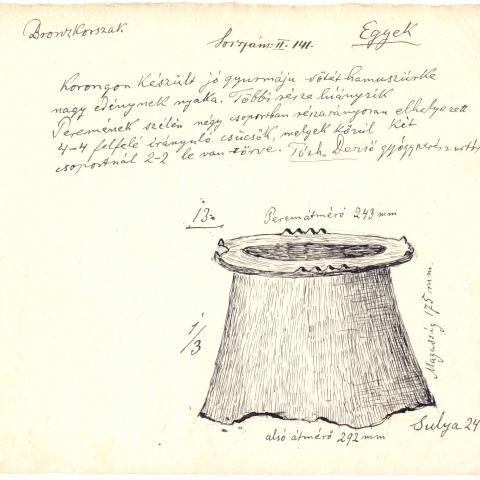 Bronzkorszak
Egyek
Korongon készült jó gyurmáju sötét hamuszürke
nagy edénynek nyaka. Többi része hiányzik
Peremének szélén négy csoportban részarányosan elhelyezett
4-4 felfelé irányuló csücsök, melyek közül két
csoportnál 2-2 le van törve. Tóth Dezső
13.
Peremátmérő 243 mm
1/3
Magasság 175 mm.
alsó átmérő 292 mm
Sulya 24